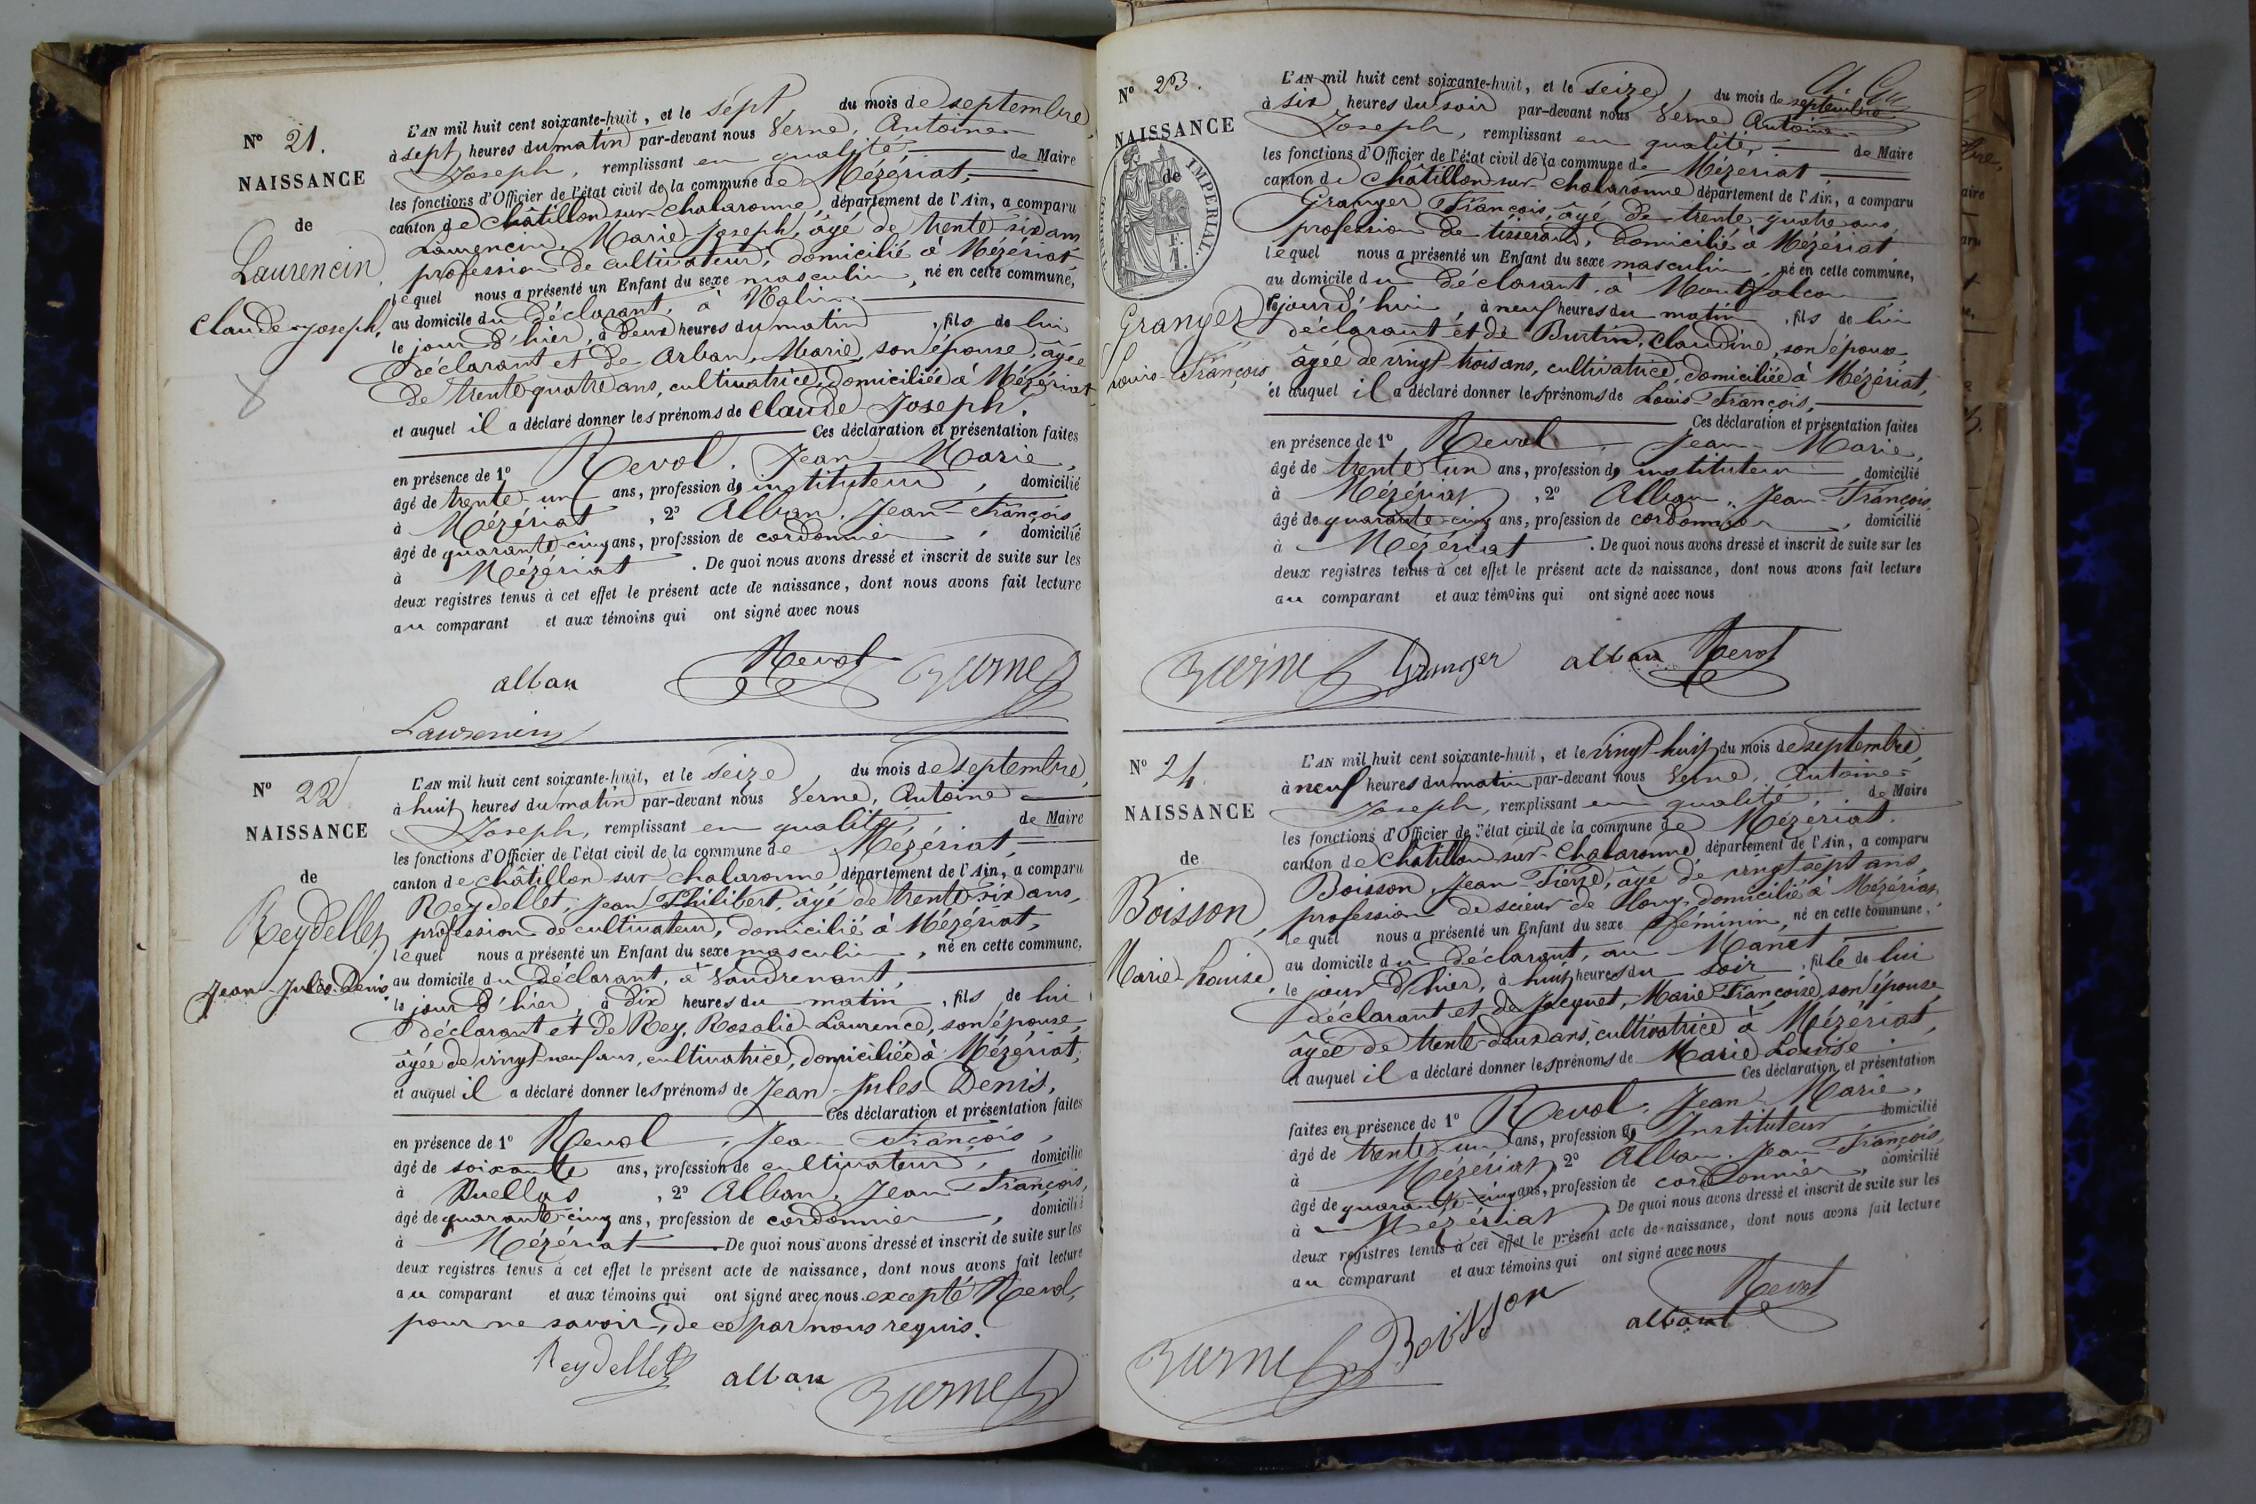 N° 21.
NAISSANCE
de
Laurencin,
Claude-Joseph,
L'AN mil huit cent soixante-huit, et le sept du mois de septembre,
à sept heures du matin par-devant nous Verne, Antoine-
Joseph, remplissant en qualité de Maire
les fonctions d'Officier de l'état civil de la commune de Mézériat,
canton de Châtillon-sur-Chalaronne, département de l'Ain, a comparu
Laurencin, Marie-Joseph, âgé de trente six ans
profession de cultivateur, domicilié à Mézériat,
lequel nous a présenté un Enfant du sexe masculin, né en cette commune,
au domicile du déclarant, à
le jour d'hier, à deux heures du matin, fils de lui
déclarant et de Arban, Marie, son épouse, âgée
de trente quatre ans, cultivatrice, domiciliée à Mézériat,
et auquel il a déclaré donner les prénoms de Claude-Joseph.
Ces déclaration et présentation faites
en présence de 1° Revol, Jean-Marie,
âgé de trente-un ans, profession de instituteur, domicilié
à Mézériat, 2° Alban, Jean-François,
âgé de quarante-cinq ans, profession de cordonnier, domicilié
à Mézériat. De quoi nous avons dressé et inscrit de suite sur les
deux registres tenus à cet effet le présent acte de naissance, dont nous avons fait lecture
au comparant et aux témoins qui ont signé avec nous
alban Revol Verne
Laurencin
N° 22
NAISSANCE
de
Reydellet,
Jean-Jules-Denis
L'AN mil huit cent soixante-huit, et le seize, du mois de septembre,
à huit heures du matin par-devant nous Verne, Antoine
Joseph, remplissant en qualité, de Maire
les fonctions d'Officier de l'état civil de la commune de Mézériat,
canton de Châtillon-sur-Chalaronne, département de l'Ain, a comparu
Reydellet, Jean Philibert, âgé de trente-six ans,
profession de cultivateur, domicilié à Mézériat,
lequel nous a présenté un Enfant du sexe masculin, né en cette commune,
au domicile du déclarant, à Vandrenant,
le jour d'hier, à dix heures du matin, fils de lui
déclarant et de Rey, Rosalie-Laurence, son épouse,
âgée de vingt-neuf ans, cultivatrice, domiciliée à Mézériat,
et auquel il a déclaré donner les prénoms de Jean-Jules Denis,
Ces déclaration et présentation faites
en présence de 1° Revol, Jean-François,
âgé de soixante ans, profession de cultivateur, domicilié
à Buellas, 2° Alban, Jean-François,
âgé de quarante-cinq ans, profession de cordonnier, domicilié
à Mézériat De quoi nous avons dressé et inscrit de suite sur les
deux registres tenus à cet effet le présent acte de naissance, dont nous avons fait lecture
au comparant et aux témoins qui ont signé avec nous excepté Revol,
pour ne savoir, de ce par nous requis.
Reydellet alban Verne
N° 23.
NAISSANCE
de
TIMBRE IMPERIAL
1 F.
Granger
Louis-François
L'AN mil huit cent soixante-huit, et le seize, du mois de septembre
à six heures du soir par-devant nous Verne Antoine-
Joseph, remplissant en qualité, de Maire
les fonctions d'Officier de l'état civil de la commune de Mézériat,
canton de Châtillon-sur-Chalaronne, département de l'Ain, a comparu
Granger François, âgé de trente-quatre ans,
profession de tisserand, domicilié à Mézériat
lequel nous a présenté un Enfant du sexe masculin, né en cette commune,
au domicile du déclarant, à Montfalcon
cejourd'hui, à neuf heures du matin, fils de lui
déclarant et de Burtin, Claudine, son épouse,
âgée de vingt-trois ans, cultivatrice, domiciliée à Mézériat,
et auquel il a déclaré donner les prénoms de Louis-François,
Ces déclaration et présentation faites
en présence de 1° Revol, Jean-Marie,
âgé de trente un ans, profession de instituteur, domicilié
à Mézériat, 2° Alban, Jean-François,
âgé de quarante-cinq ans, profession de cordonnier, domicilié
à Mézériat. De quoi nous avons dressé et inscrit de suite sur les
deux registres tenus à cet effet le présent acte de naissance, dont nous avons fait lecture
au comparant et aux témoins qui ont signé avec nous
Verne Granger alban Revol
N° 24.
NAISSANCE
de
Boisson,
Marie-Louise,
L'AN mil huit cent soixante-huit, et le vingt-huit du mois de septembre,
à neuf heures du matin par-devant nous Verne, Antoine-
Joseph, remplissant en qualité, de Maire
les fonctions d'Officier de l'état civil de la commune de Mézériat.
canton de Châtillon-sur-Chalaronne, département de l'Ain, a comparu
Boisson, Jean-Pierre, âgé de vingt-sept ans,
profession de scieur de long, domicilié à Mézériat,
lequel nous a présenté un Enfant du sexe féminin, né en cette commune,
au domicile du déclarant, au Manet
le jour d'hier, à huit heures du soir, fille de lui
déclarant et de Jacquet, Marie-Françoise, son épouse,
âgée de trente-deux ans, cultivatrice à Mézériat,
et auquel il a déclaré donner les prénoms de Marie Louise.
Ces déclaration et présentation
faites en présence de 1° Revol, Jean-Marie,
âgé de trente-un ans, profession de Instituteur, domicilié
à Mézériat, 2° Alban, Jean-François,
âgé de quarante-cinq ans, profession de cordonnier, domicilié
à Mézériat. De quoi nous avons dressé et inscrit de suite sur les
deux registres tenus à cet effet le présent acte de naissance, dont nous avons fait lecture
au comparant et aux témoins qui ont signé avec nous
Verne Boisson alban Revol